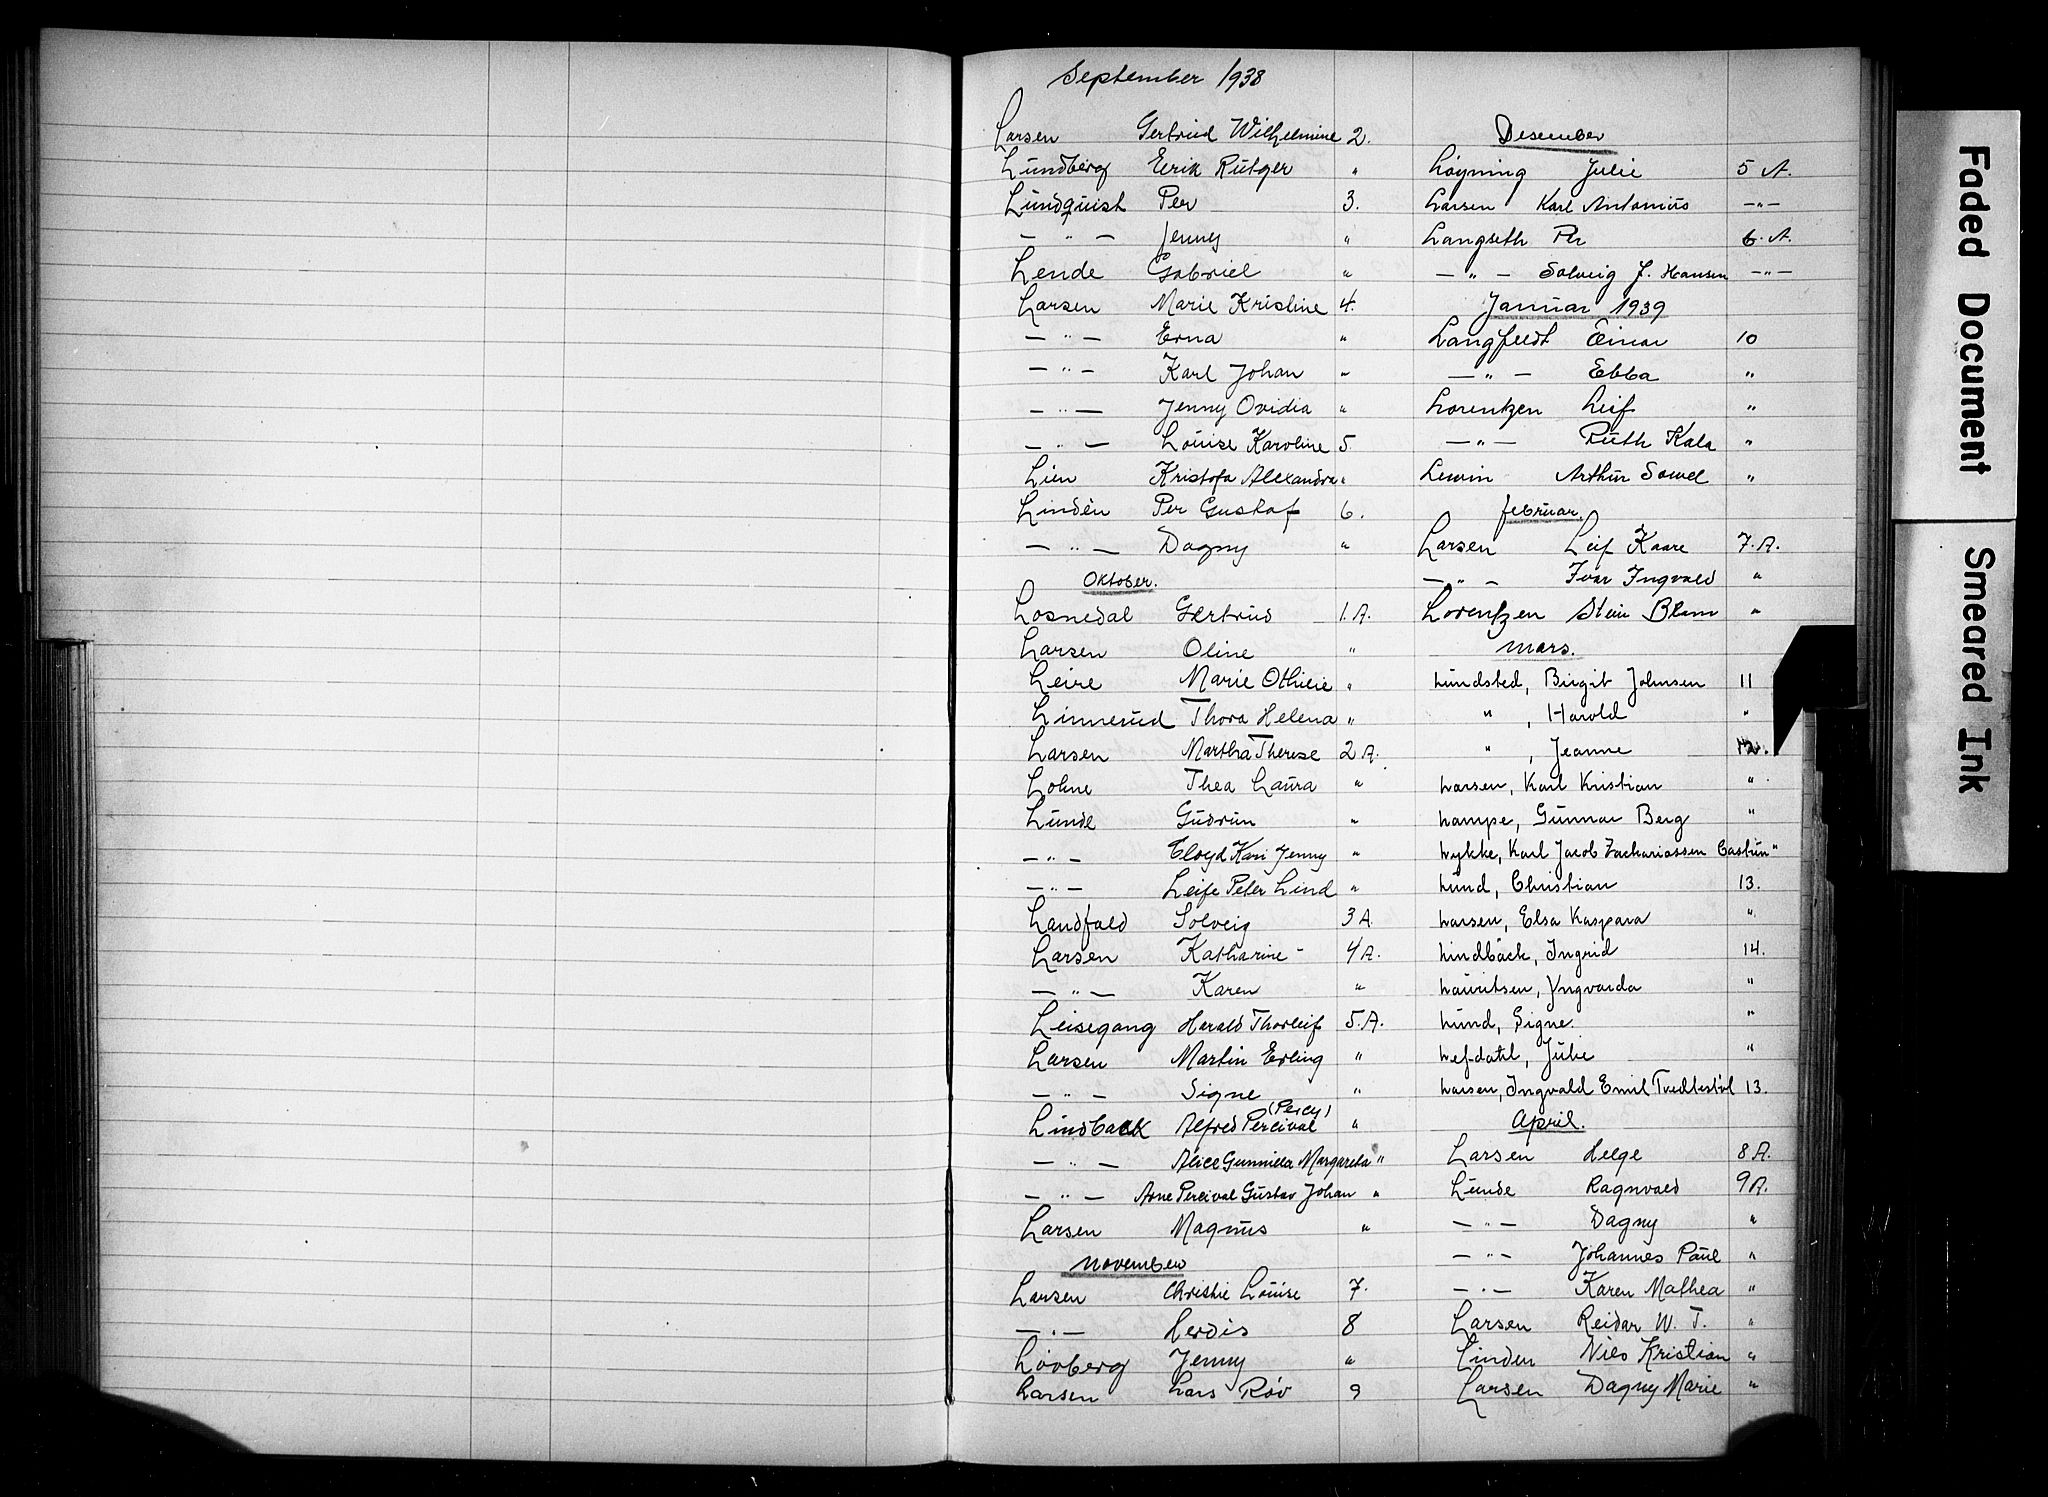 September 1938
Larsen Gertrud Wilhelmine 2.
Lundberg Eerik Rutger "
Lundquist Per 3.
— " — Jenny "
Lende Gabriel "
Larsen Marie Kristine 4.
— " — Erna "
— " — Karl Johan "
— " — Jenny Ovidia "
— " — Louise Karoline 5.
Lien Kristofa Alexandra "
Lindèn Per Gustaf 6.
— " — Dagny "
Oktober.
Losnedal Gertrud 1.A.
Larsen Oline "
Leire Marie Othilie "
Linnerud Thora Helena "
Larsen Martha Therese 2 A.
Lohne Thea Laura "
Lunde Gudrun "
— " — Eloyd Kari Jenny "
— " — Leife Peter Lind "
Landfald Solveig 3 A.
Larsen Katharine - 4 A.
— " — Karen "
Leisegang Harald Thorleif 5.A.
Larsen Martin Erling "
— " — Signe "
Lindback Alfred Percival (Percy) "
— " — Alice Gunnilla Margareta "
— " — Arne Percival Gustav Johan "
Larsen Magnus "
November
Larsen Christie Louise 7.
— " — Herdis 8
Løvberg Jenny "
Larsen Lars Røv 9
Desember
Løyning Julie 5 A.
Larsen Karl Antonius — " —
Langseth Per 6. A.
— " — Solveig J. Hansen — " —
Januar 1939
Langfeldt Einar 10
— " — Ebba "
Lorentzen Leif "
— " — Ruth Kala "
Lewin Arthur Sawel "
februar.
Larsen Leif Kaare 7.A.
— " — Ivar Ingvald "
Lorentzen Stein Blom "
mars.
Lundsted, Birgit Johnsen 11
" , Harold "
" , Jeanne 12.
Larsen, Karl Kristian "
Lampe, Gunnar Berg "
Lykke, Karl Jacob Zachariassen "
Lund, Christian 13.
Larsen, Elsa Kaspara "
Lindbäck, Ingrid 14.
Lauritsen, Yngvarda "
Lund, Signe. "
Lefdahl, Julie "
Larsen, Ingvald Emil Tvedtestøl 13.
April.
Larsen Helge 8 A.
Lunde Ragnvald 9 A.
— " — Dagny "
— " — Johannes Paul "
— " — Karen Mathea "
Larsen Reidar W. T. "
Linden Nils Kristian "
Larsen Dagny Marie "
Faded Document
Smeared Ink